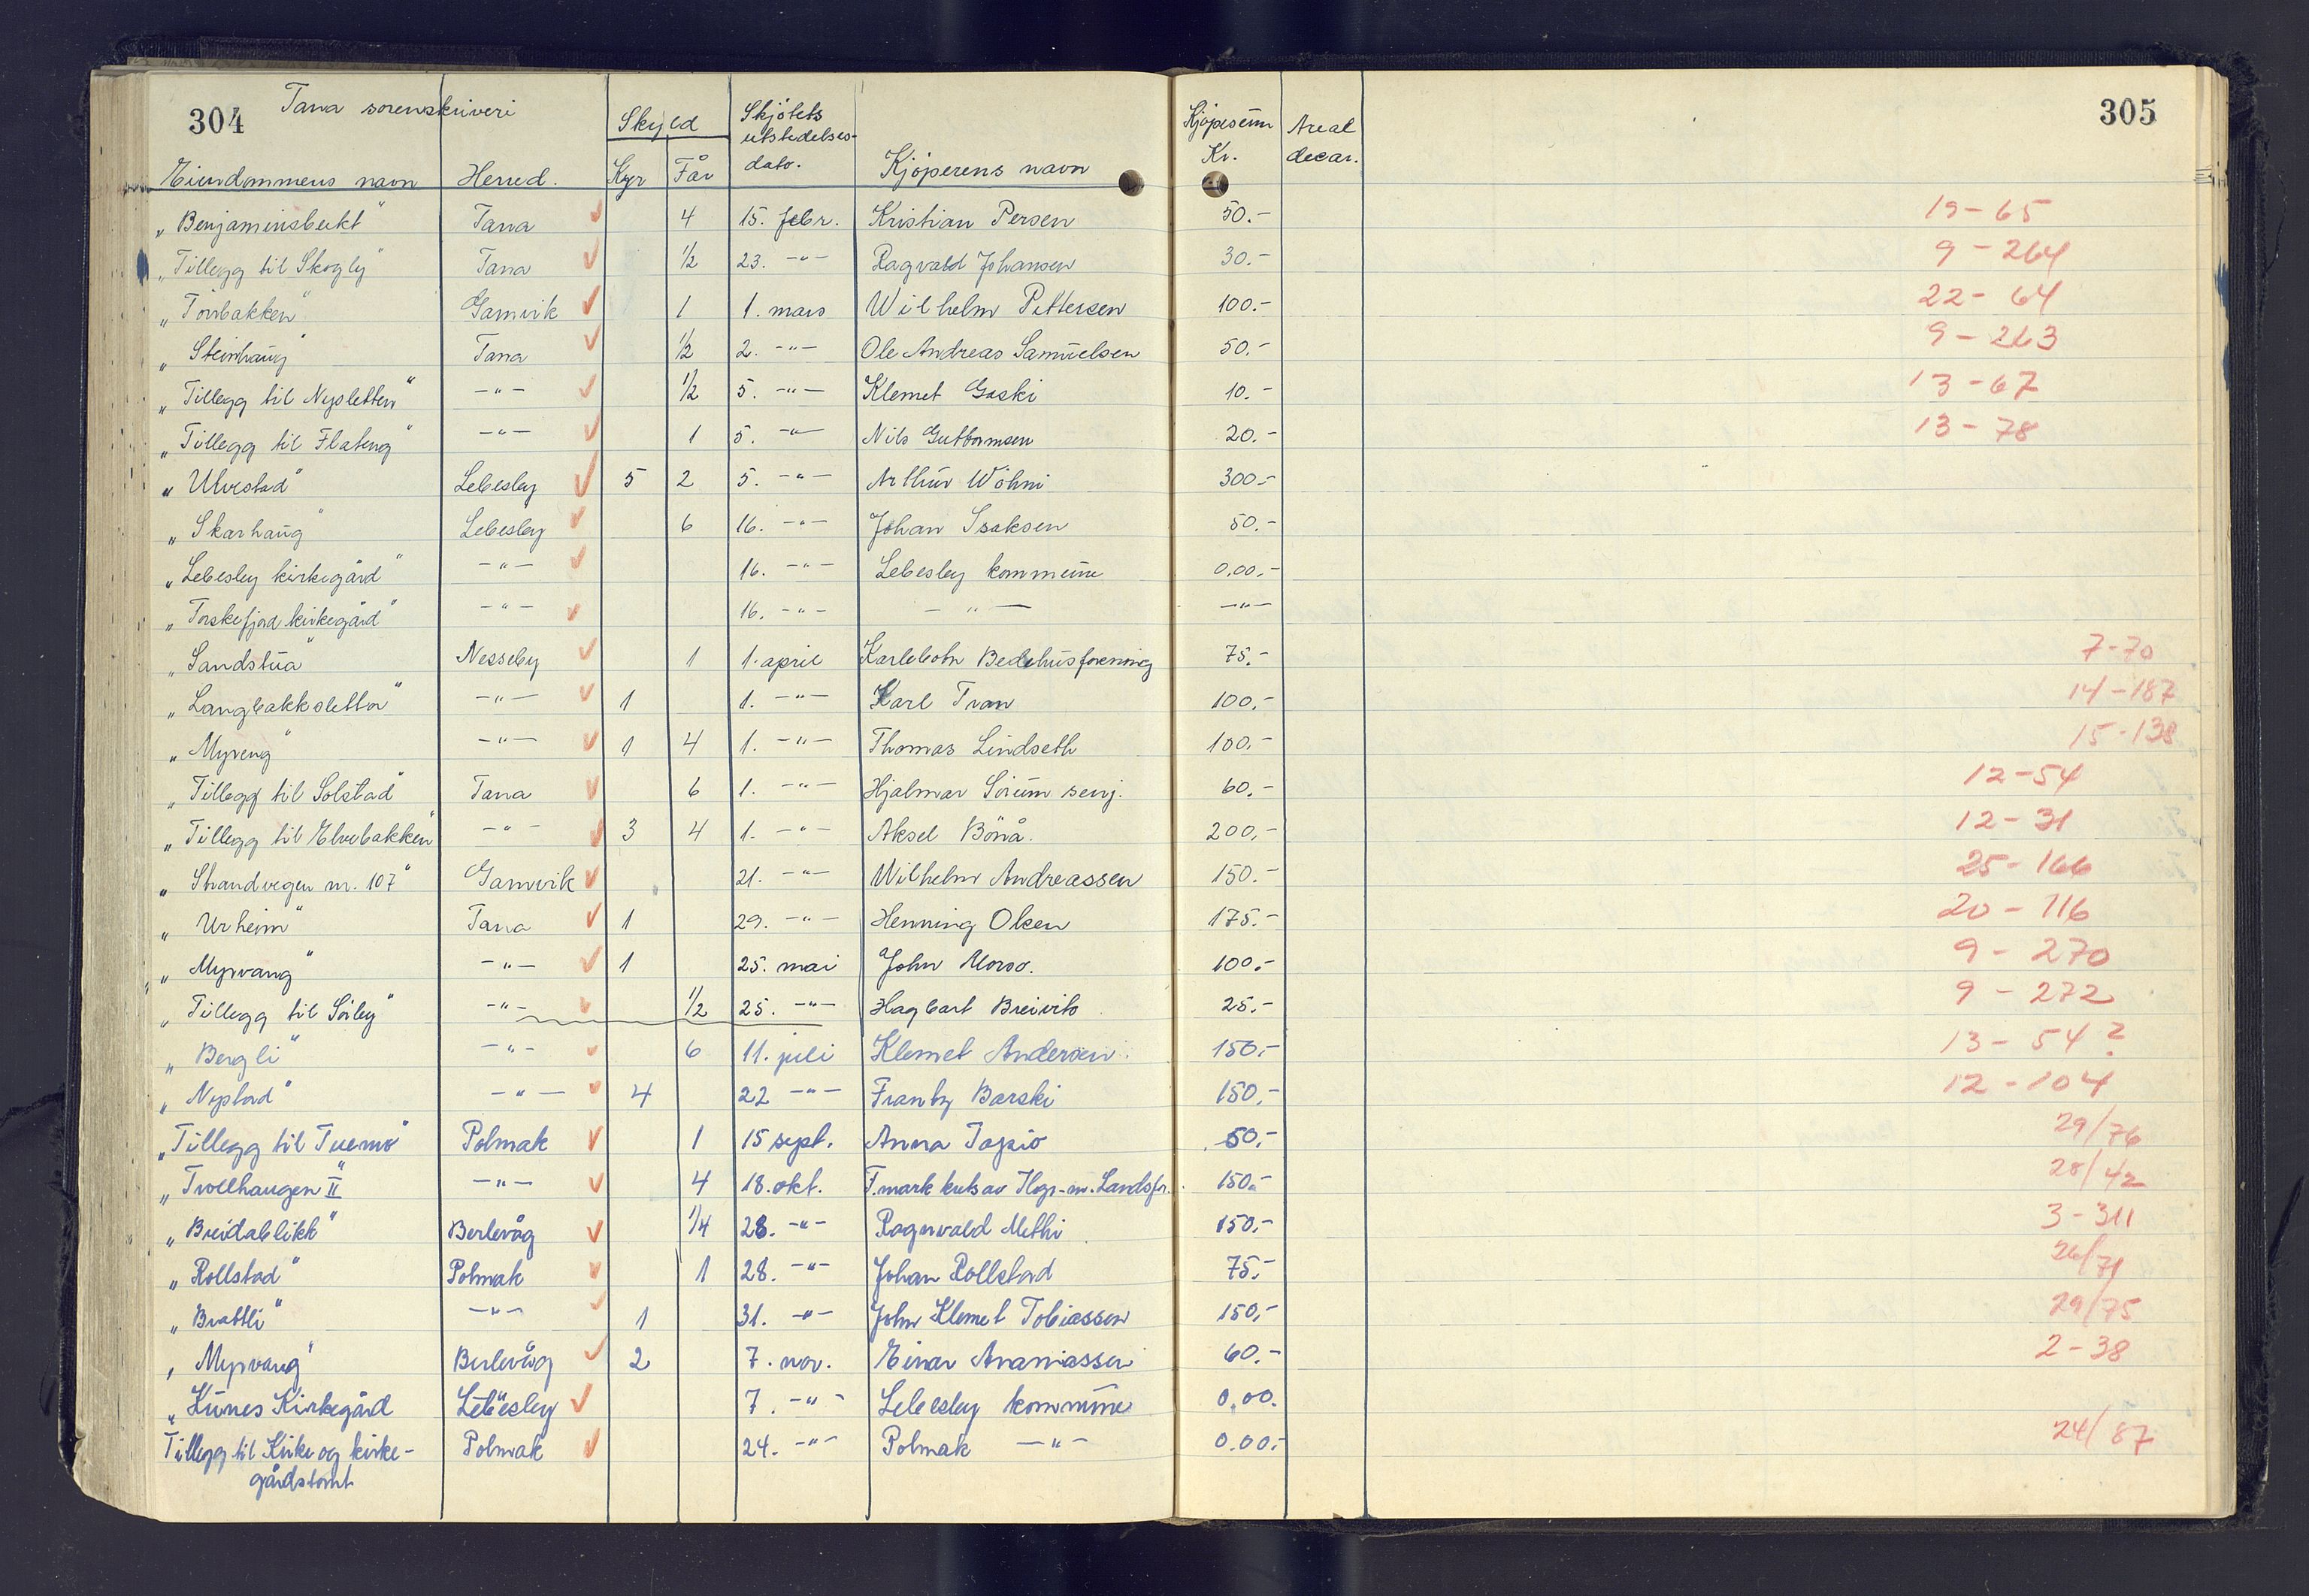 304 Tana sorenskriveri 305
Eiendommens navn Herred. Skyld Kyr Får Skjøtets utstedelses-dato. Kjøperens navn Kjøpesum Kr. Areal decar.
„Benjaminsbukt" Tana 4 15. febr. Kristian Persen 50.- 19-65
„Tillegg til Skogly" Tana 1/2 23. -"- Ragvald Johansen 30.- 9-264
„Torvbakken" Gamvik 1 1. mars Wilhelm Pettersen 100.- 22-64
„Steinhaug" Tana 1/2 2. -"- Ole Andreas Samuelsen 50.- 9-263
„Tillegg til Nysletten" -"- 1/2 5. -"- Klemet Gaski 10.- 13-67
„Tillegg til Flateng" -"- 1 5. -"- Nils Guttormsen 20.- 13-78
„Ulvestad" Lebesby 5 2 5. -"- Arthur Wøhni 300.-
„Skarhaug" Lebesby 6 16. -"- Johan Isaksen 50.-
„Lebesby kirkegård" -"- 16. -"- Lebesby kommune 0.00.-
„Torskefjord kirkegård" -"- 16. -"- -"- -"-
„Sandstua" Nesseby 1 1. april Karlebotn Bedehusforening 75.- 7-70
„Langbakksletta" -"- 1 1. -"- Karl Tran 100.- 14-187
„Myreng" -"- 1 4 1. -"- Thomas Lindseth 100.- 15-138
„Tillegg til Solstad" Tana 6 1. -"- Hjalmar Sørum senj. 60.- 12-54
„Tillegg til Elvebakken" -"- 3 4 1. -"- Aksel Bønå. 200.- 12-31
„Strandvegen nr. 107" Gamvik 21. -"- Wilhelm Andreassen 150.- 25-166
„Urheim" Tana 1 29. -"- Henning Olsen 175.- 20-116
„Myrvang" -"- 1 25. mai John 100.- 9-270
„Tillegg til Sørly" -"- 1/2 25. -"- Hagbart Breivik 25.- 9-272
„Bergli" -"- 6 11. juli Klemet Andersen 150.- 13-54?
„Nystad" -"- 4 22 -"- Frantz Barski 150.- 12-104
„Tillegg til Tuemo" Polmak 1 15 sept. Anna Tapio 50.- 29/76
„Trollhaugen II" -"- 4 18. okt. F.mark krets av Hgs-m. Landsfr. 150.- 28/42
„Breidablikk" Berlevåg 1/4 28. -"- Ragnvald Methi 150.- 3-311
„Rollstad" Polmak 1 28. -"- Johan Rollstad 75.- 26/71
„Brattli" -"- 1 31. -"- John Klemet Tobiassen 150.- 29/75
„Myrvang" Berlevåg 2 7. nov. Einar Ananiassen 60.- 2-38
„Kunes Kirkegård" Lebesby 7. -"- Lebesby kommune 0.00.
Tillegg til Kirke og kirke- Polmak 24. -"- Polmak -"- 0.00.- 24/87
gårdstomt